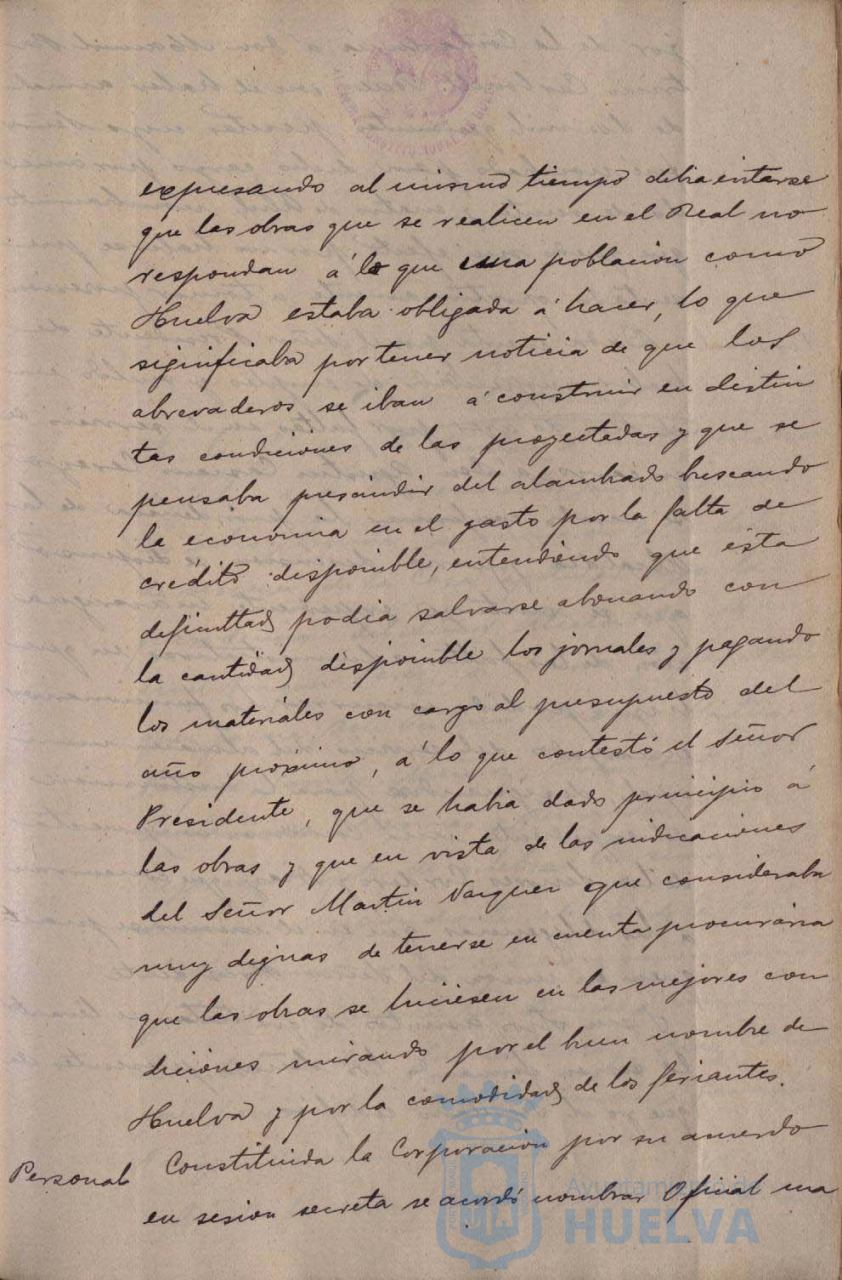 expresando al mismo tiempo debia evitarse
que las obras que se realicen en el Real no
respondan á lo que una poblacion como
Huelva estaba obligada á hacer, lo que
significaba por tener noticia de que los
abrevaderos se iban á construir en distin
tas condiciones de las proyectadas y que se
pensaba prescindir del alambrado buscando
la economia en el gasto por la falta de
crédito disponible, entendiendo que esta
dificultad podia salvarse abonando con
la cantidad disponible los jornales y pagando
los materiales con cargo al presupuesto del
año próximo, á lo que contestó el Señor
Presidente, que se habia dado principio á
las obras y que en vista de las indicaciones
del Señor Martin Vazquez que consideraba
muy dignas de tenerse en cuenta procuraria
que las obras se hiciesen en las mejores con
diciones mirando por el buen nombre de
Huelva y por la comodidad de los feriantes.
Personal Constituida la Corporacion por su acuerdo
en sesion secreta se acordó nombrar Oficial ma
Ayuntamiento de
HUELVA